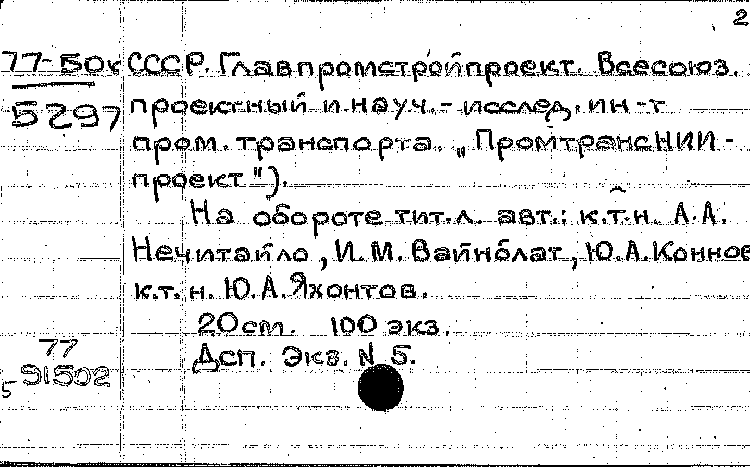 2
77-50к СССР. Главпромстройпроект. Всесоюз.
5297 проектный и науч.-исслед. ин-т
пром. транспорта „ПромтрансНИИ-
проект").
На обороте тит.л. авт.: к.т.н. А.А.
Нечитайло, И.М. Вайнблат, Ю.А. Коннов
к.т.н. Ю.А. Яхонтов.
20см. 100 экз.
77 Дсп. Экз. N 5.
5 91502